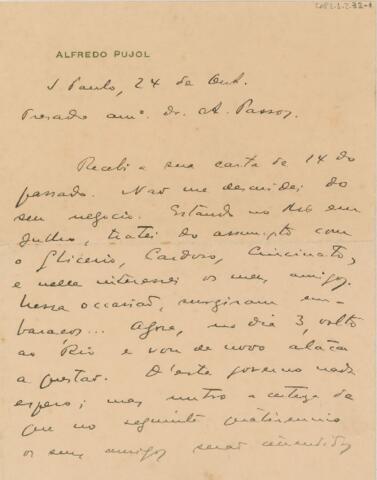 ALFREDO PUJOL
S. Paulo, 24 de Out.
Presado am°. dr. A. Passos,
Recebi a sua carta de 14 do
passado. Não me descuidei do
seu negocio. Estando no Rio em
Julho, tratei do assumpto com
o Glicerio, Cardoso, Cincinato,
e nelle interessei os meus amigos.
Nessa occasião, surgiram em-
baraços... Agora, no dia 3, volto
ao Rio e vou de novo atacar
a questão. D'este governo nada
espero; mas nutro a certeza de
que no seguinte quatriennio
os seus amigos serão attendidos